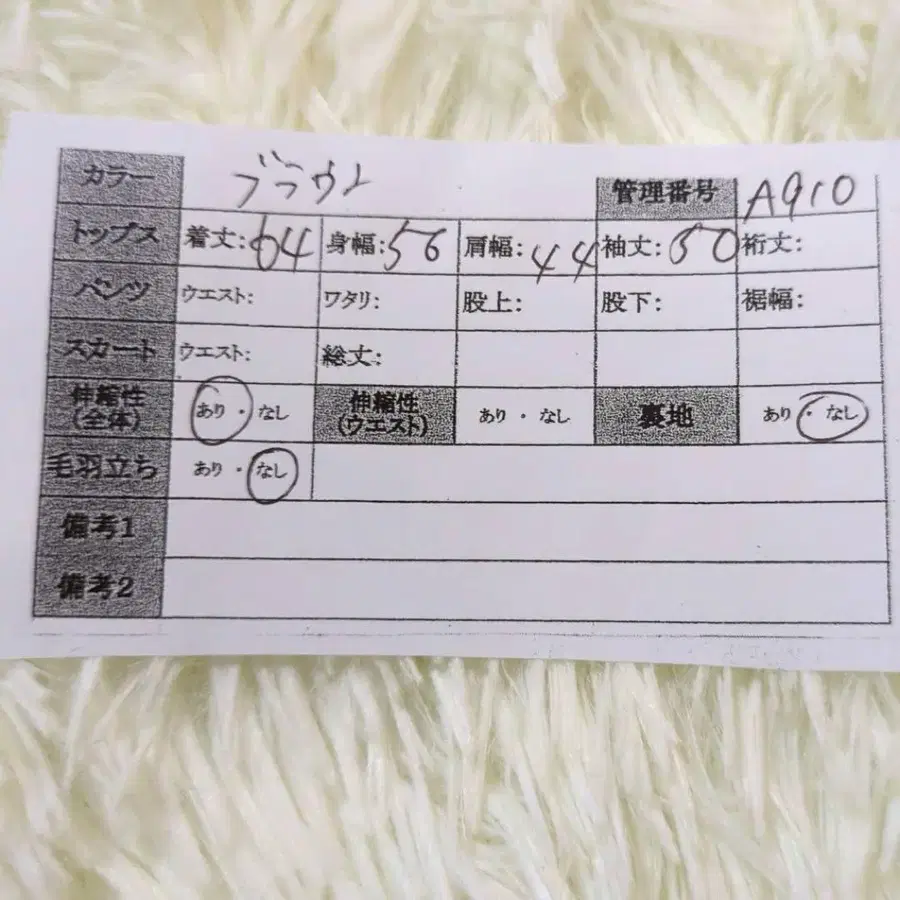 カラー ブラウン 管理番号 A910
トップス 着丈:64 身幅:56 肩幅:44 袖丈:50 裄丈:
パンツ ウエスト: ワタリ: 股上: 股下: 裾幅:
スカート ウエスト: 総丈:
伸縮性(全体) あり・なし 伸縮性(ウエスト) あり・なし 裏地 あり・なし
毛羽立ち あり・なし
備考1
備考2